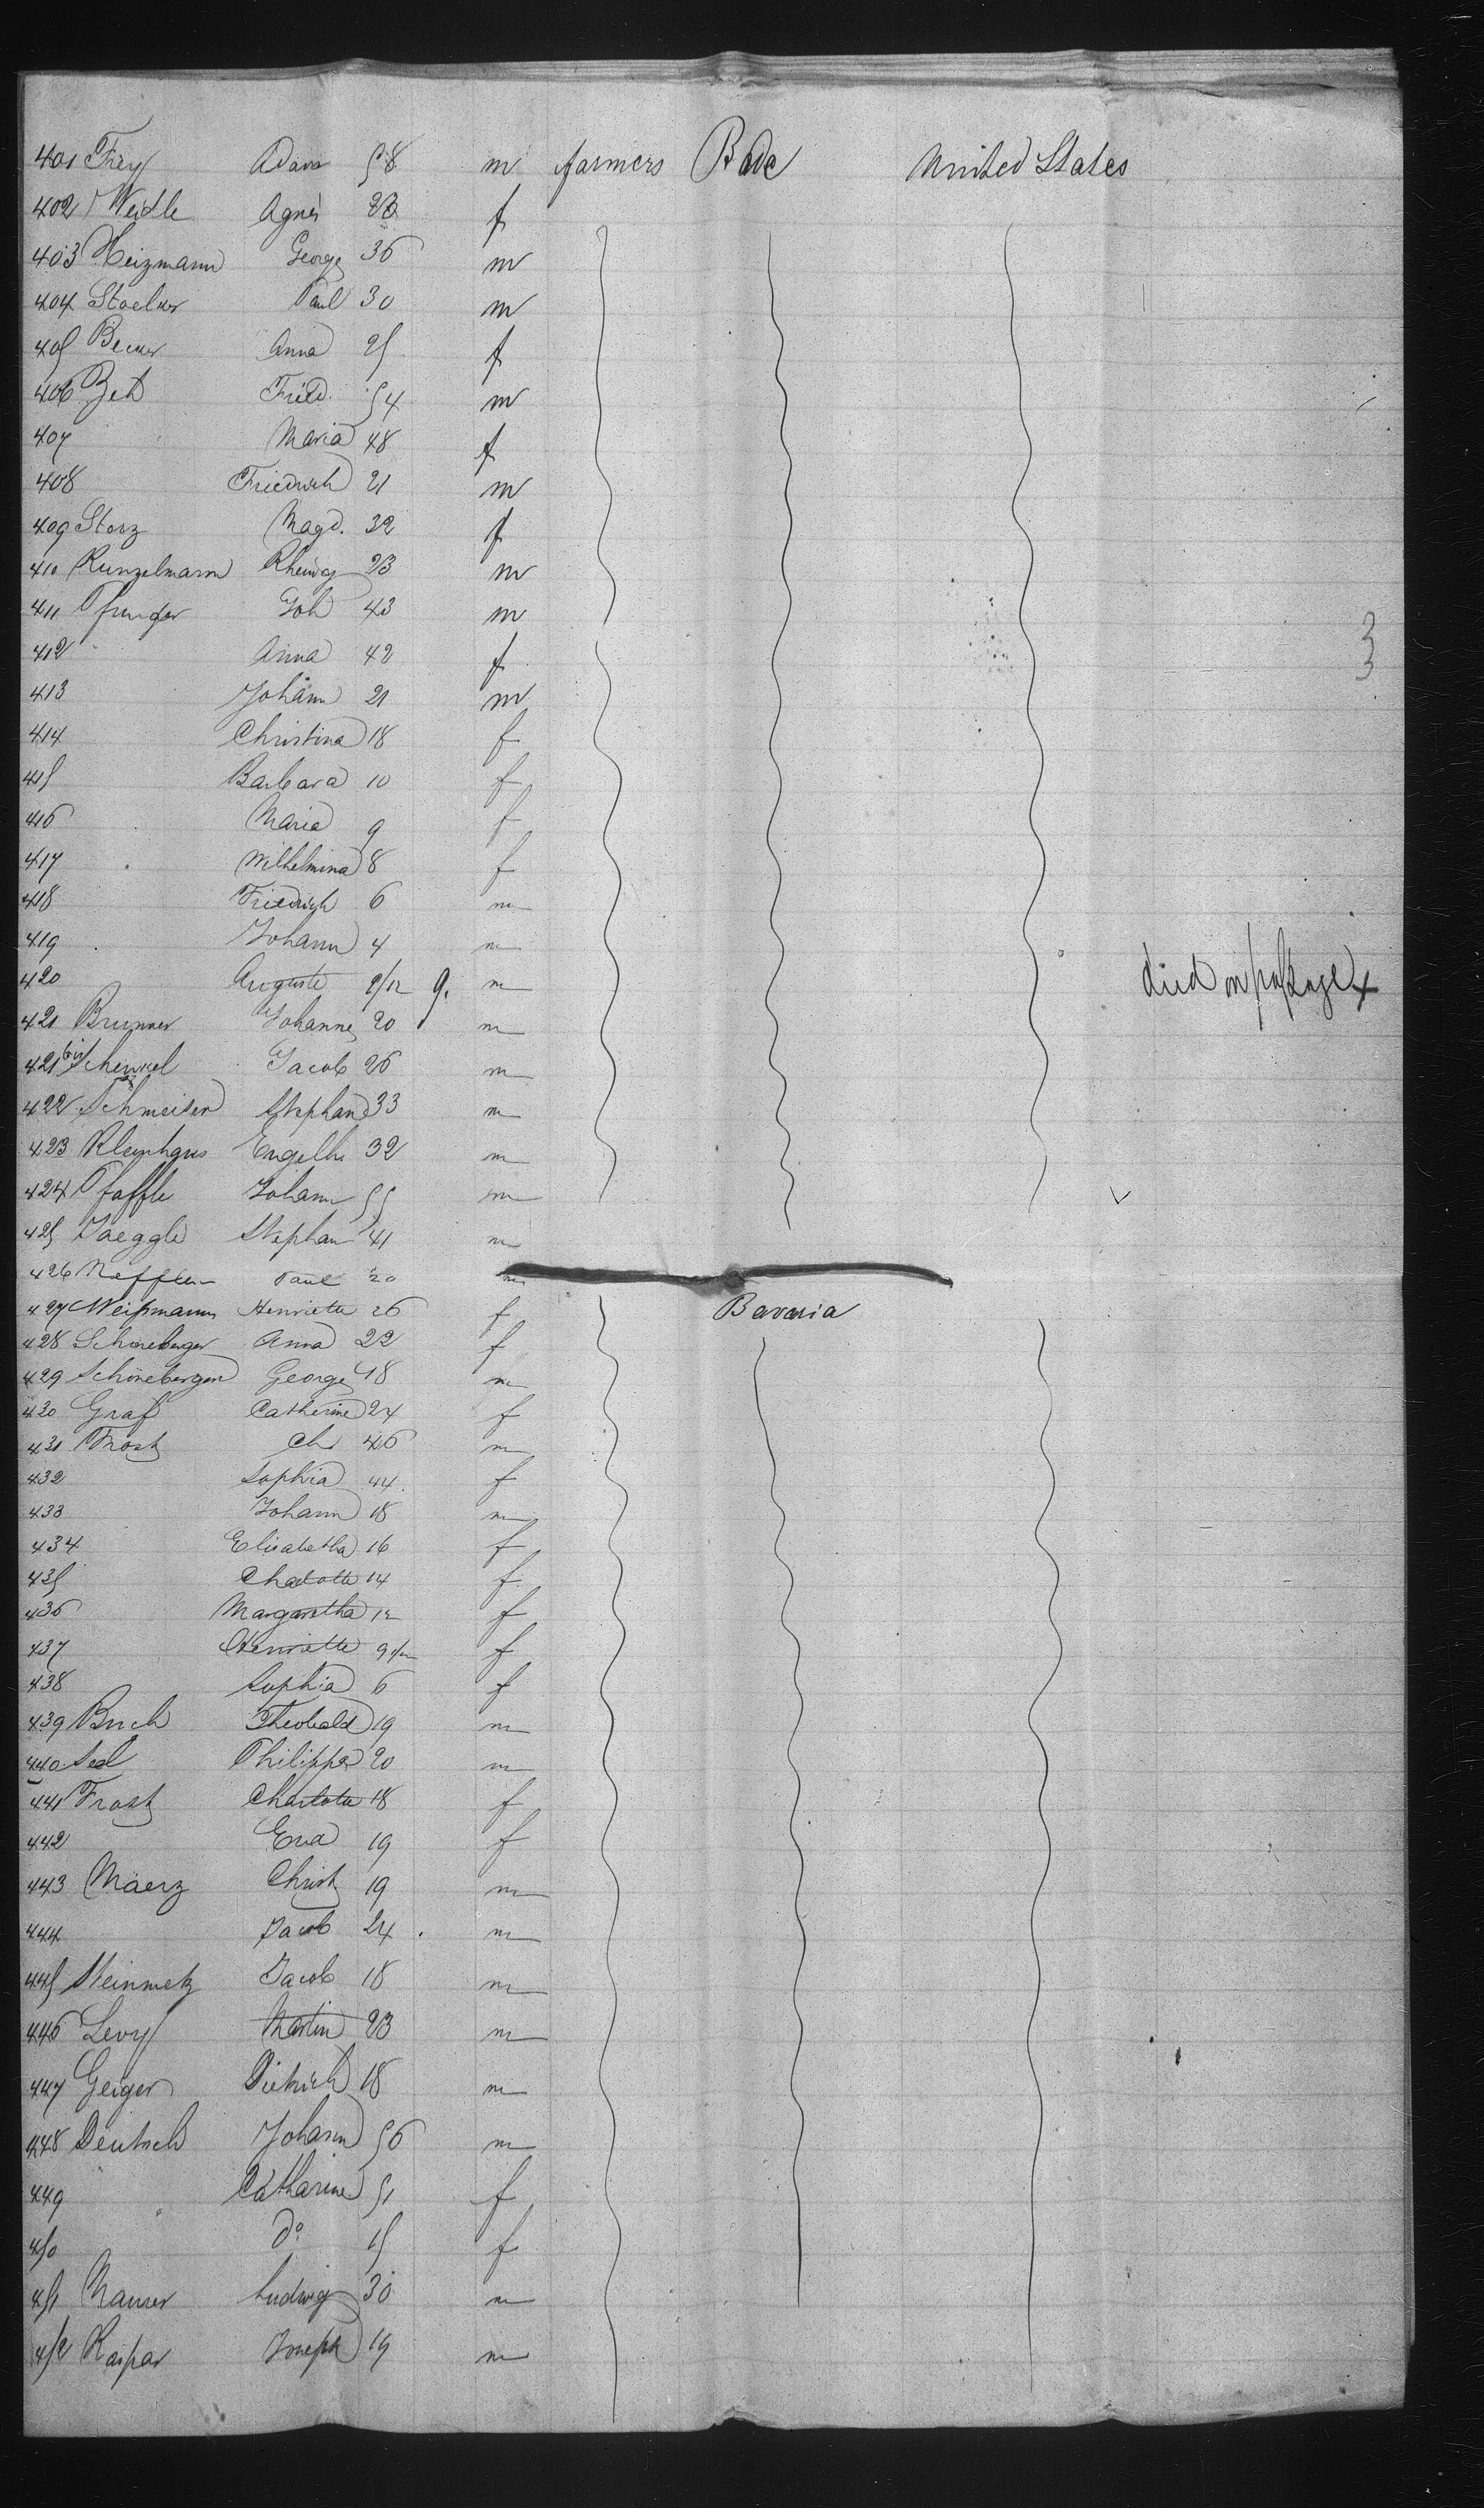 401 Frey Adam 58 m farmers Bade United States
402 Weidle Agnes 23 f
403 Heizmann George 36 m
404 Stoelker Paul 30 m
405 Becker Anna 25 f
406 Zeh Fried. 54 m
407 Maria 48 f
408 Friedrich 21 m
409 Storz Magd. 32 f
410 Kunzelmann 23 m
411 Joh 43 m
412 Anna 42 f
413 Johann 21 m
414 Christina 18 f
415 Barbara 10 f
416 Maria 9 f
417 Wilhelmina 8 f
418 Friedrich 6 m
419 Johann 4 m
420 Auguste 9/12 9. m died on passage x
421 Brunner Johannes 20 m
421 bis Schenkel Jacob 26 m
422 Schmeiser Stephan 33 m
423 Kleinhans Engelh 32 m
424 Pfaffle Johann 55 m
425 Jaeggle Stephan 41 m
426 Paul 20 m
427 Weißmann Henriette 26 f Bavaria
428 Schoneberger Anna 22 f
429 Schöneberger George 18 m
430 Graf Catherine 24 f
431 Ch 46 m
432 Sophia 44. f
433 Johann 18 m
434 Elisabetha 16 f
435 Charlotte 14 f
436 Margaretha 12 f
437 Henriette f
438 Sophia 6 f
439 Buch Theobald 19 m
440 Seel Philippe 20 m
441 Frost Charlotte 18 f
442 Eva 19 f
443 Maerz Christ 19 m
444 Jacob 24 m
445 Steinmetz Jacob 18 m
446 Levy Martin 23 m
447 Geiger Dietrich 18 m
448 Deutsch Johann 56 m
449 Catharine 51 f
450 do 15 f
451 Maurer Ludwig 30 m
452 Kaspar Joseph 19 m